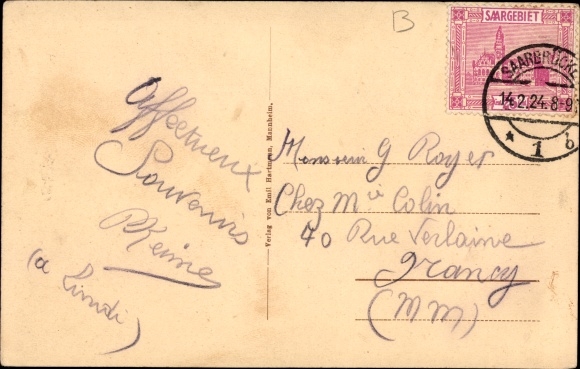 B
SAARGEBIET
SAARBRÜCKEN
14.2.24.8-9
* 1 b
Affectueux
Souvenirs
(a Lundi)
Verlag von Emil Hartmann, Mannheim.
Monsieur G Royer
Chez Mle Colin
70 Rue Verlaine
Nancy
(MM)